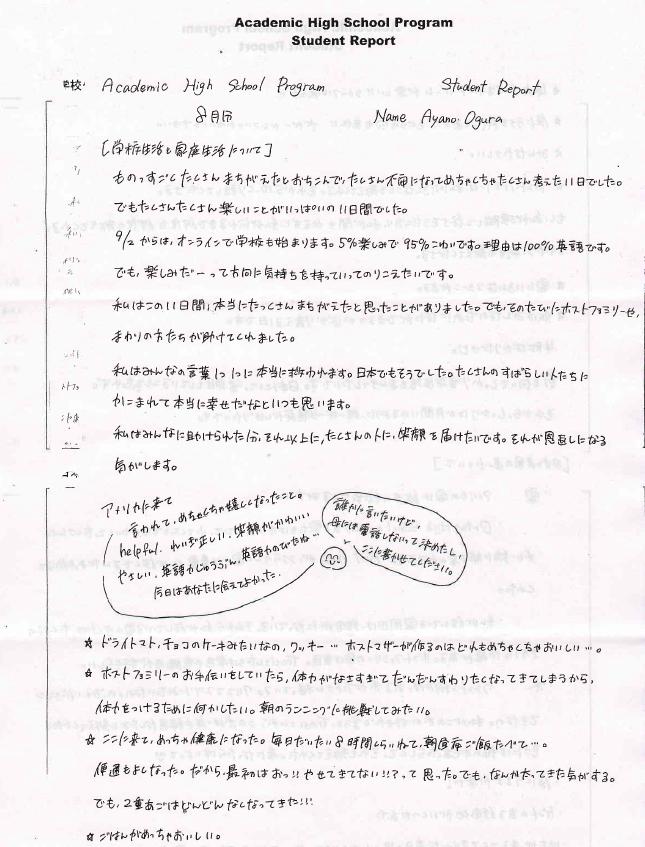 Academic High School Program
Student Report
Academic High School Program Student Report
8月分 Name Ayano Ogura
[学校生活と家庭生活について]
ものっすごくたくさんまちがえたとおちこんで、たくさん不安になってめちゃくちゃたくさん考えた11日でした。
でもたくさんたくさん楽しいことがいっぱいの11日間でした。
9/2からは、オンラインで学校も始まります。5%楽しみで95%こわいです。理由は100%英語です。
でも、楽しみだーって方向に気持ちを持っていってのりこえたいです。
私はこの11日間、本当にたっくさんまちがえたと思ったことがありました。でも、そのたびにホストファミリーや、
まわりの方たちが助けてくれました。
私はみんなの言葉1つ1つに本当に救われます。日本でもそうでした。たくさんのすばらしい人たちに
かこまれて本当に幸せだなといつも思います。
私はみんなに助けられた分、それ以上に、たくさんの人に、笑顔を届けたいです。それが恩返しになる
気がします。
アメリカに来て
言われて、めちゃくちゃ嬉しくなったこと。
helpful. れいぎ正しい. 笑顔がかわいい
やさしい. 英語力じゅうぶん. 英語力のびたね…
今日はあなたに会えてよかった.
誰かに言いたいけど、
母には電話しないって決めたし、
ここに書かせてください。
☆ ドライトマト, チョコのケーキみたいなの, クッキー… ホストマザーが作るのはどれもめちゃくちゃおいしい…。
☆ ホストファミリーのお手伝いをしていたら、体力がなさすぎてだんだんすわりたくなってきてしまうから、
体力をつけるために何かしたい。朝のランニングに挑戦してみたい。
☆ ここに来て、めっちゃ健康になった。毎日だいたい8時間くらいねて、朝昼夜ご飯たべて…。
便通もよくなった。だから、最初はおっ!! やせてきてない!!?って思った。でも、なんか太ってきた気がする。
でも、2重あごはどんどんなくなってきた!!!
☆ ごはんがめっちゃおいしい。